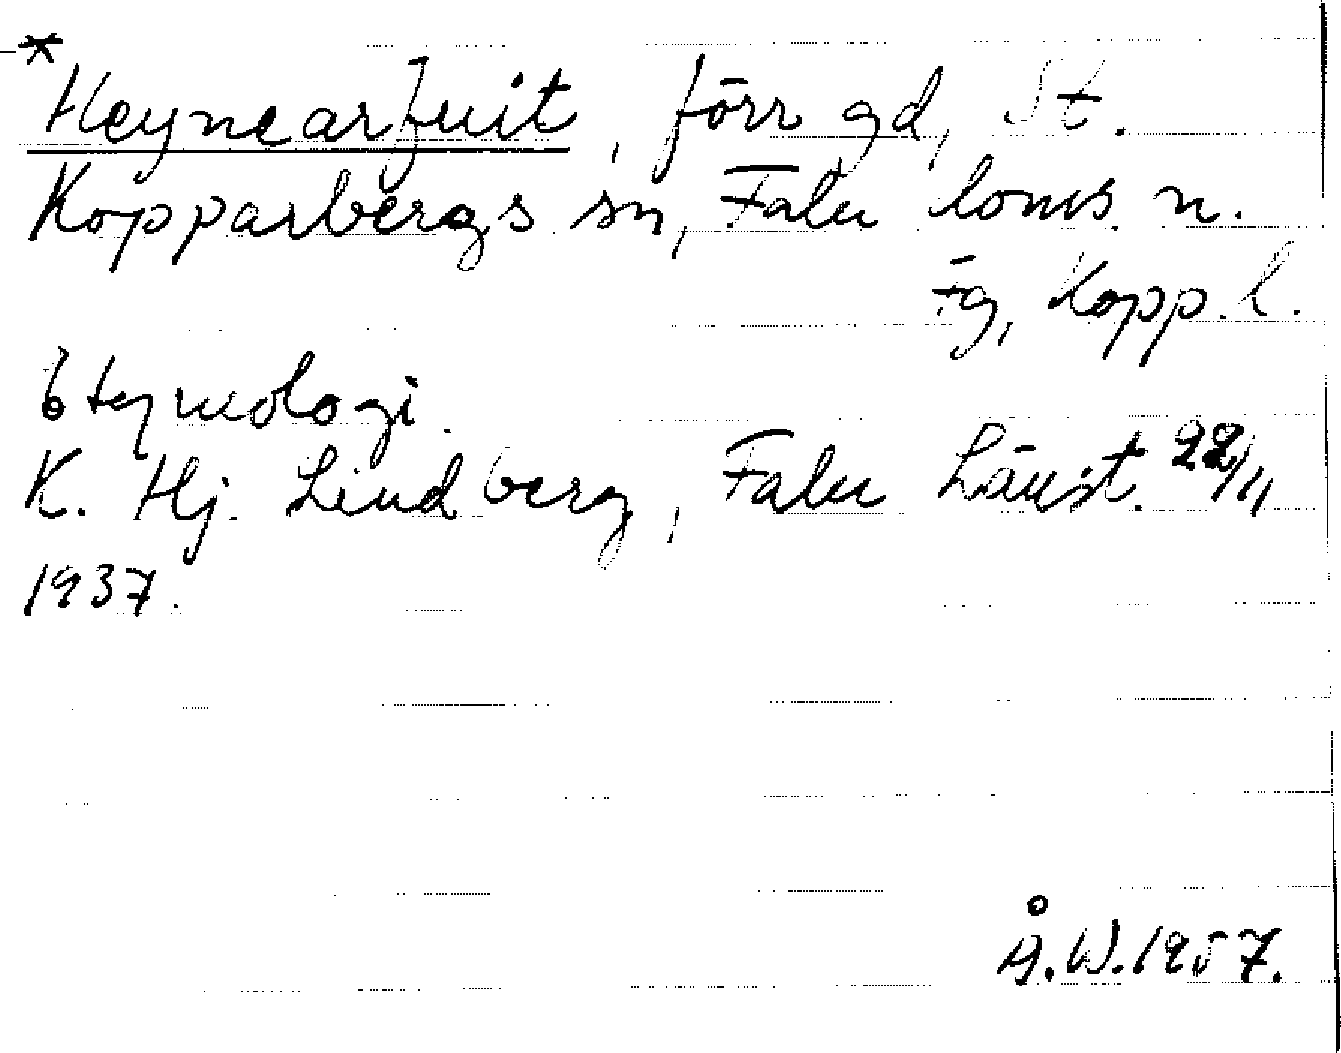 *
Heynearfuit, förr gd, St.
Kopparbergs sn, Falu loms. n.
Fg, Kopp. l.
Etymologi.
K. Hj. Lindberg, Falu Länst. 22/11
1937.
Å.W. 1957.